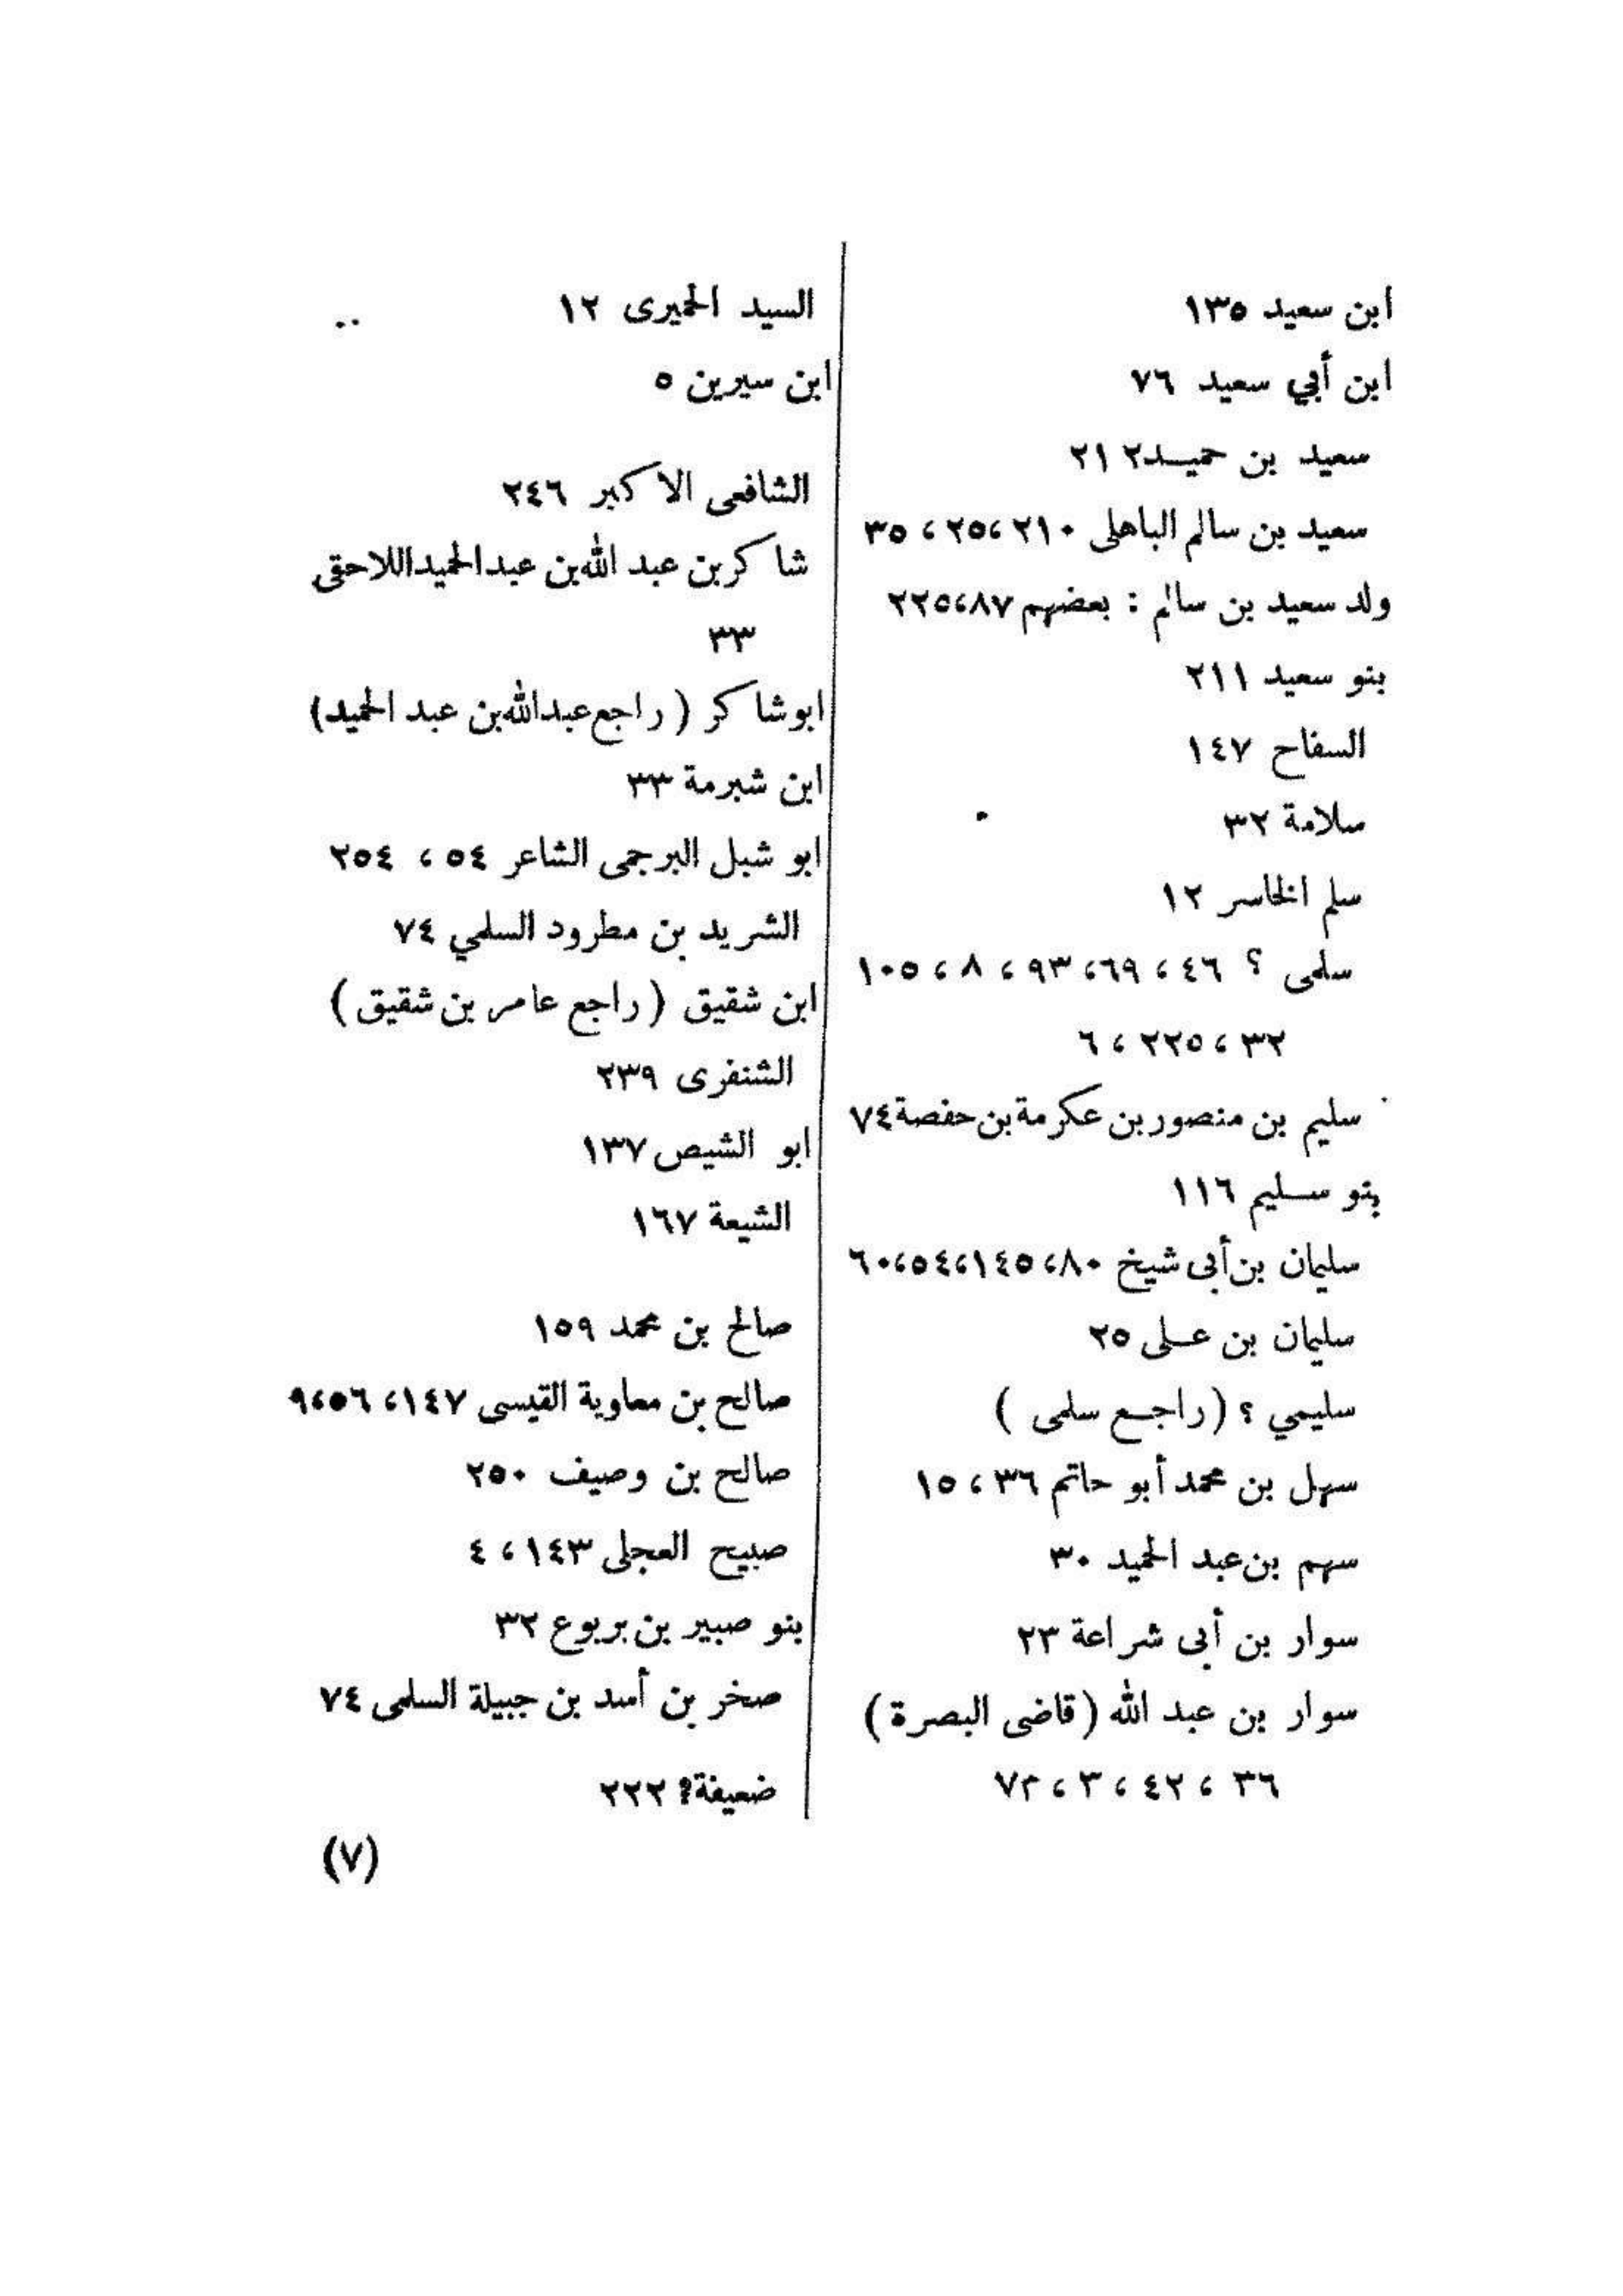 ابن سعيد ١٣٥
ابن أبي سعيد ٧٦
سعيد بن حميـد٢١٢
سعيد بن سالم الباهلى ٢١٠ ،٢٥ ، ٣٥
ولد سعيد بن سالم : بعضهم ٨٧،٢٢٥
بنو سعيد ٢١١
السفاح ١٤٧
سلامة ٣٢
سلم الخاسر ١٢
سلمى ؟ ٤٦ ، ٦٩، ٩٣ ، ٨ ، ١٠٥
٣٢ ، ٢٢٥ ، ٦
سليم بن منصور بن عكرمة بن حفصة ٧٤
بنو سـليم ١١٦
سليمان بن أبى شيخ ٨٠، ١٤٥،٥٤،٦٠
سليمان بن عـلى ٢٥
سليمي ؟ (راجـع سلمى )
سهل بن محمد أبو حاتم ٣٦ ، ١٥
سهم بن عبد الحميد ٣٠
سوار بن أبى شراعة ٢٣
سوار بن عبد الله (قاضى البصرة )
٣٦ ، ٤٢ ، ٣ ، ٧٢
السيد الحميرى ١٢
ابن سيرين ٥
الشافعى الاكبر ٢٤٦
شاكر بن عبد الله بن عبد الحميد اللاحقى
٣٣
ابو شاكر ( راجع عبد الله بن عبد الحميد)
ابن شبرمة ٣٣
ابو شبل البرجمى الشاعر ٥٤ ، ٢٥٤
الشريد بن مطرود السلمي ٧٤
ابن شقيق ( راجع عامر بن شقيق )
الشنفرى ٢٣٩
ابو الشيص ١٣٧
الشيعة ١٦٧
صالح بن محمد ١٥٩
صالح بن معاوية القيسى ١٤٧، ٥٦،٩
صالح بن وصيف ٢٥٠
صبيح العجلى ١٤٣ ، ٤
بنو صبير بن بربوع ٣٢
صخر بن أسد بن جبيلة السلمى ٧٤
ضعيفة؟ ٢٢٢
(٧)